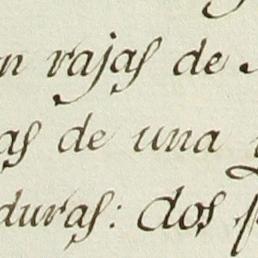 n rajas de
as de una
duras: dos